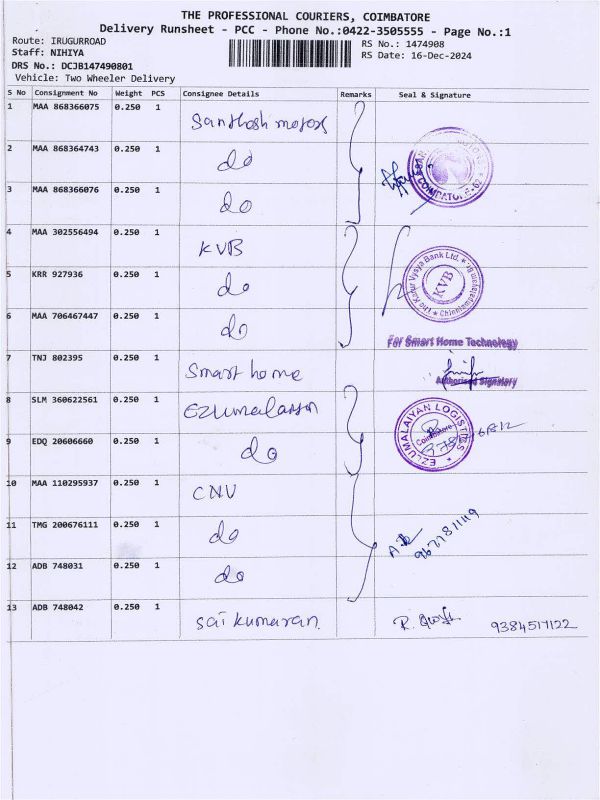 THE PROFESSIONAL COURIERS, COIMBATORE
Delivery Runsheet - PCC - Phone No.:0422-3505555 - Page No.:1
Route: IRUGURROAD
RS No.: 1474908
Staff: NIHIYA
RS Date: 16-Dec-2024
DRS No.: DCJB147490801
Vehicle: Two Wheeler Delivery
S No Consignment No Weight PCS Consignee Details Remarks Seal & Signature
1 MAA 868366075 0.250 1 Santhosh motors
2 MAA 868364743 0.250 1 do
3 MAA 868366076 0.250 1 do
COIMBATORE
4 MAA 302556494 0.250 1 KVB
The Karur Vysya Bank Ltd. KVB Chinniampalayam
5 KRR 927936 0.250 1 do
6 MAA 706467447 0.250 1 do
For Smart Home Technology
7 TNJ 802395 0.250 1 Smart home
Authorised Signatory
8 SLM 360622561 0.250 1 Ezlumalaiyan
EZLUMALAIYAN LOGISTICS Coimbatore
9 EDQ 20606660 0.250 1 do
10 MAA 110295937 0.250 1 CNV
11 TMG 200676111 0.250 1 do
12 ADB 748031 0.250 1 do
13 ADB 748042 0.250 1 Sai kumaran. 9384517122